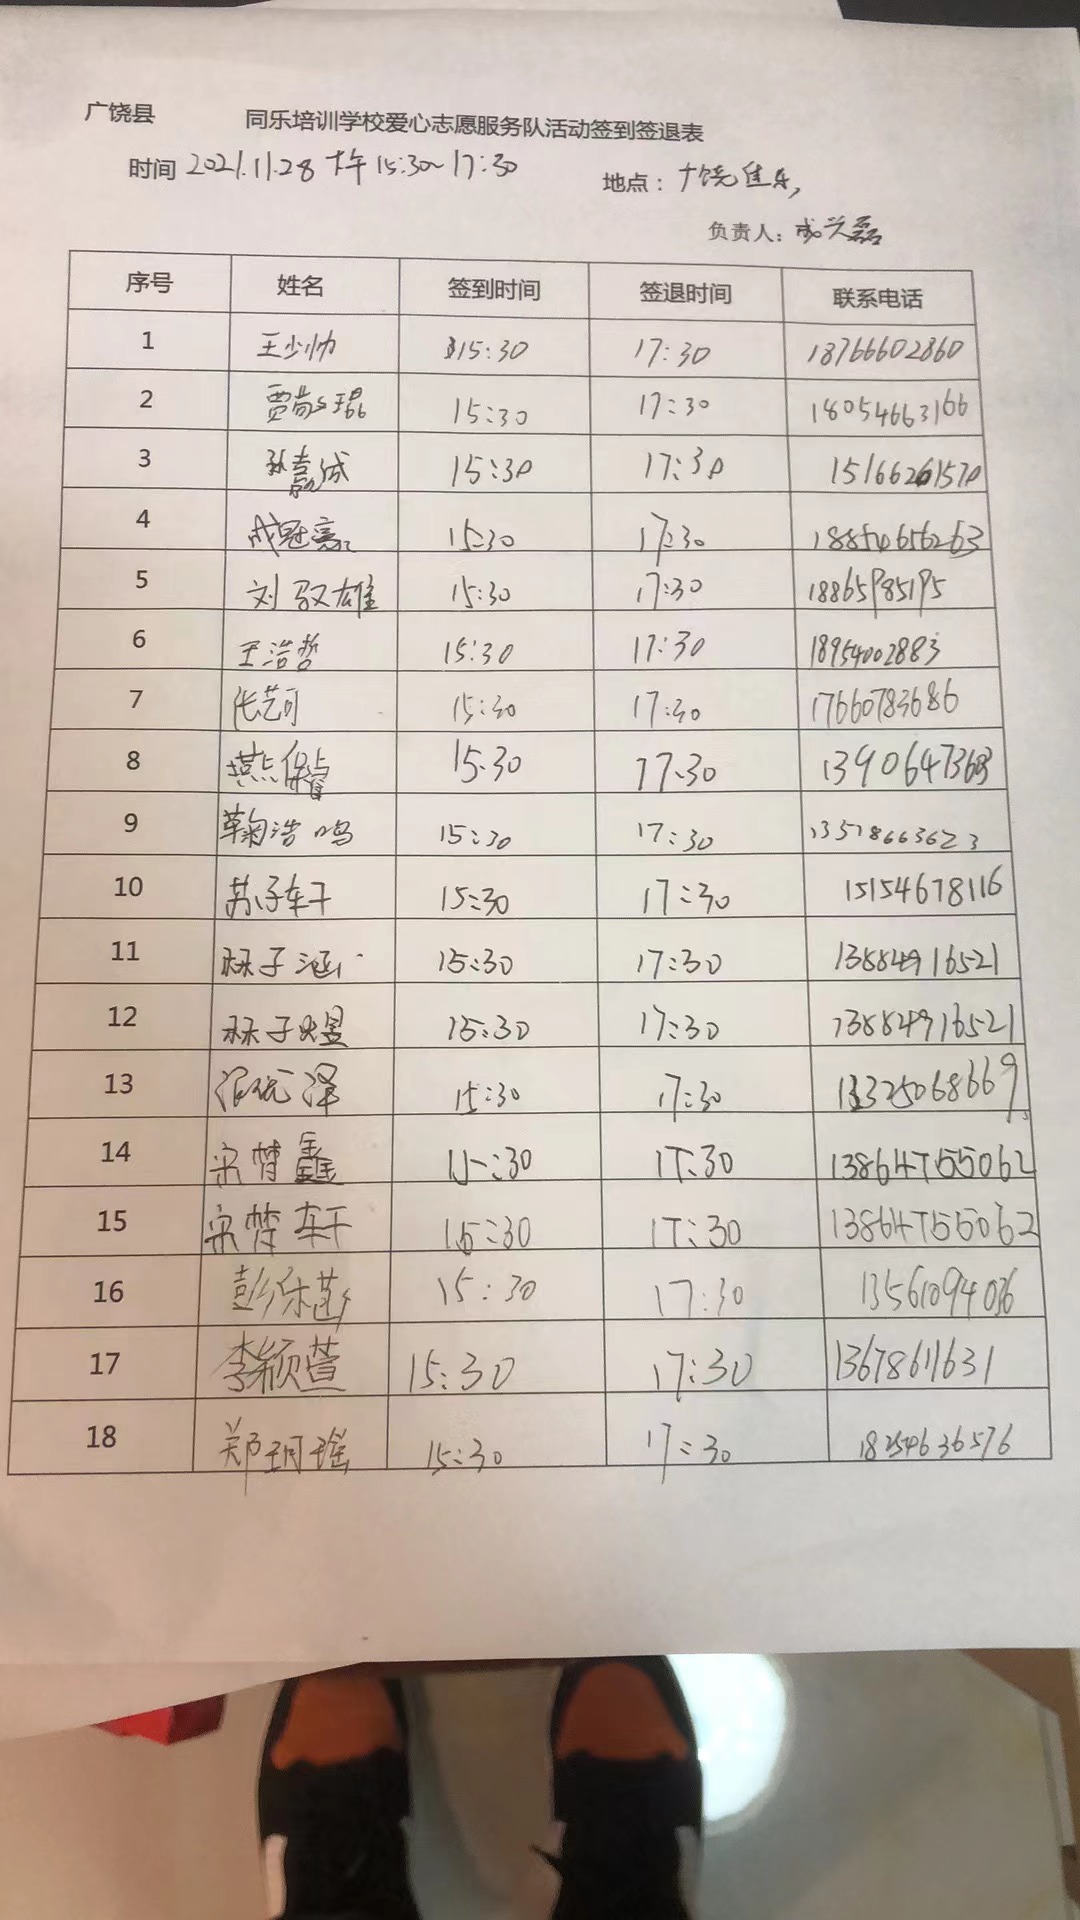 广饶县 同乐培训学校爱心志愿服务队活动签到签退表
时间 2021.11.28 下午 15:30~17:30 地点：广饶佳乐
负责人：成兴磊
序号 姓名 签到时间 签退时间 联系电话
1 王少帅 15:30 17:30 18766602860
2 贾尚琨 15:30 17:30 18054663166
3 孙嘉诚 15:30 17:30 15166261570
4 成冠豪 15:30 17:30 18854656263
5 刘驭雄 15:30 17:30 18865985195
6 王浩哲 15:30 17:30 18954002883
7 张艺可 15:30 17:30 17660783686
8 燕保睿 15.30 17.30 13906473603
9 鞠浩鸣 15:30 17:30 13578663623
10 苏子轩 15:30 17:30 15154678116
11 林子涵 15:30 17:30 13884916521
12 林子煜 15:30 17:30 13884916521
13 泽 15:30 17:30 13325068669
14 宋梦鑫 15:30 17:30 13864755062
15 宋梦轩 15:30 17:30 13864755062
16 彭 15:30 17:30 13561094036
17 李颖萱 15:30 17:30 13678611631
18 郑玥瑶 15:30 17:30 18254636576